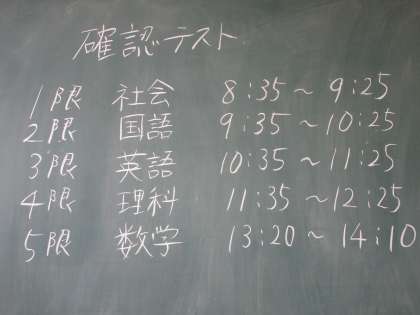 確認テスト
1限 社会 8:35 ~ 9:25
2限 国語 9:35 ~ 10:25
3限 英語 10:35 ~ 11:25
4限 理科 11:35 ~ 12:25
5限 数学 13:20 ~ 14:10